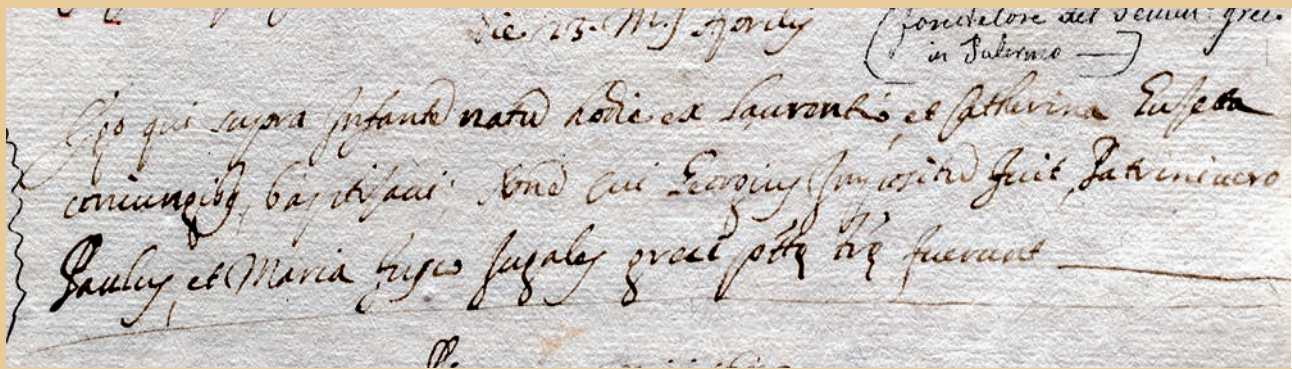 die 23. M.s Aprilis
(fonditore del Semin. grec. in Palermo —)
Ego qui supra Infante natu hodie ex Laurentio, et Catherina
coniungibq baptisavi, cui Georgius Impositu fuit, Patrini vero
Paulus, et Maria Jugales greci fuerunt